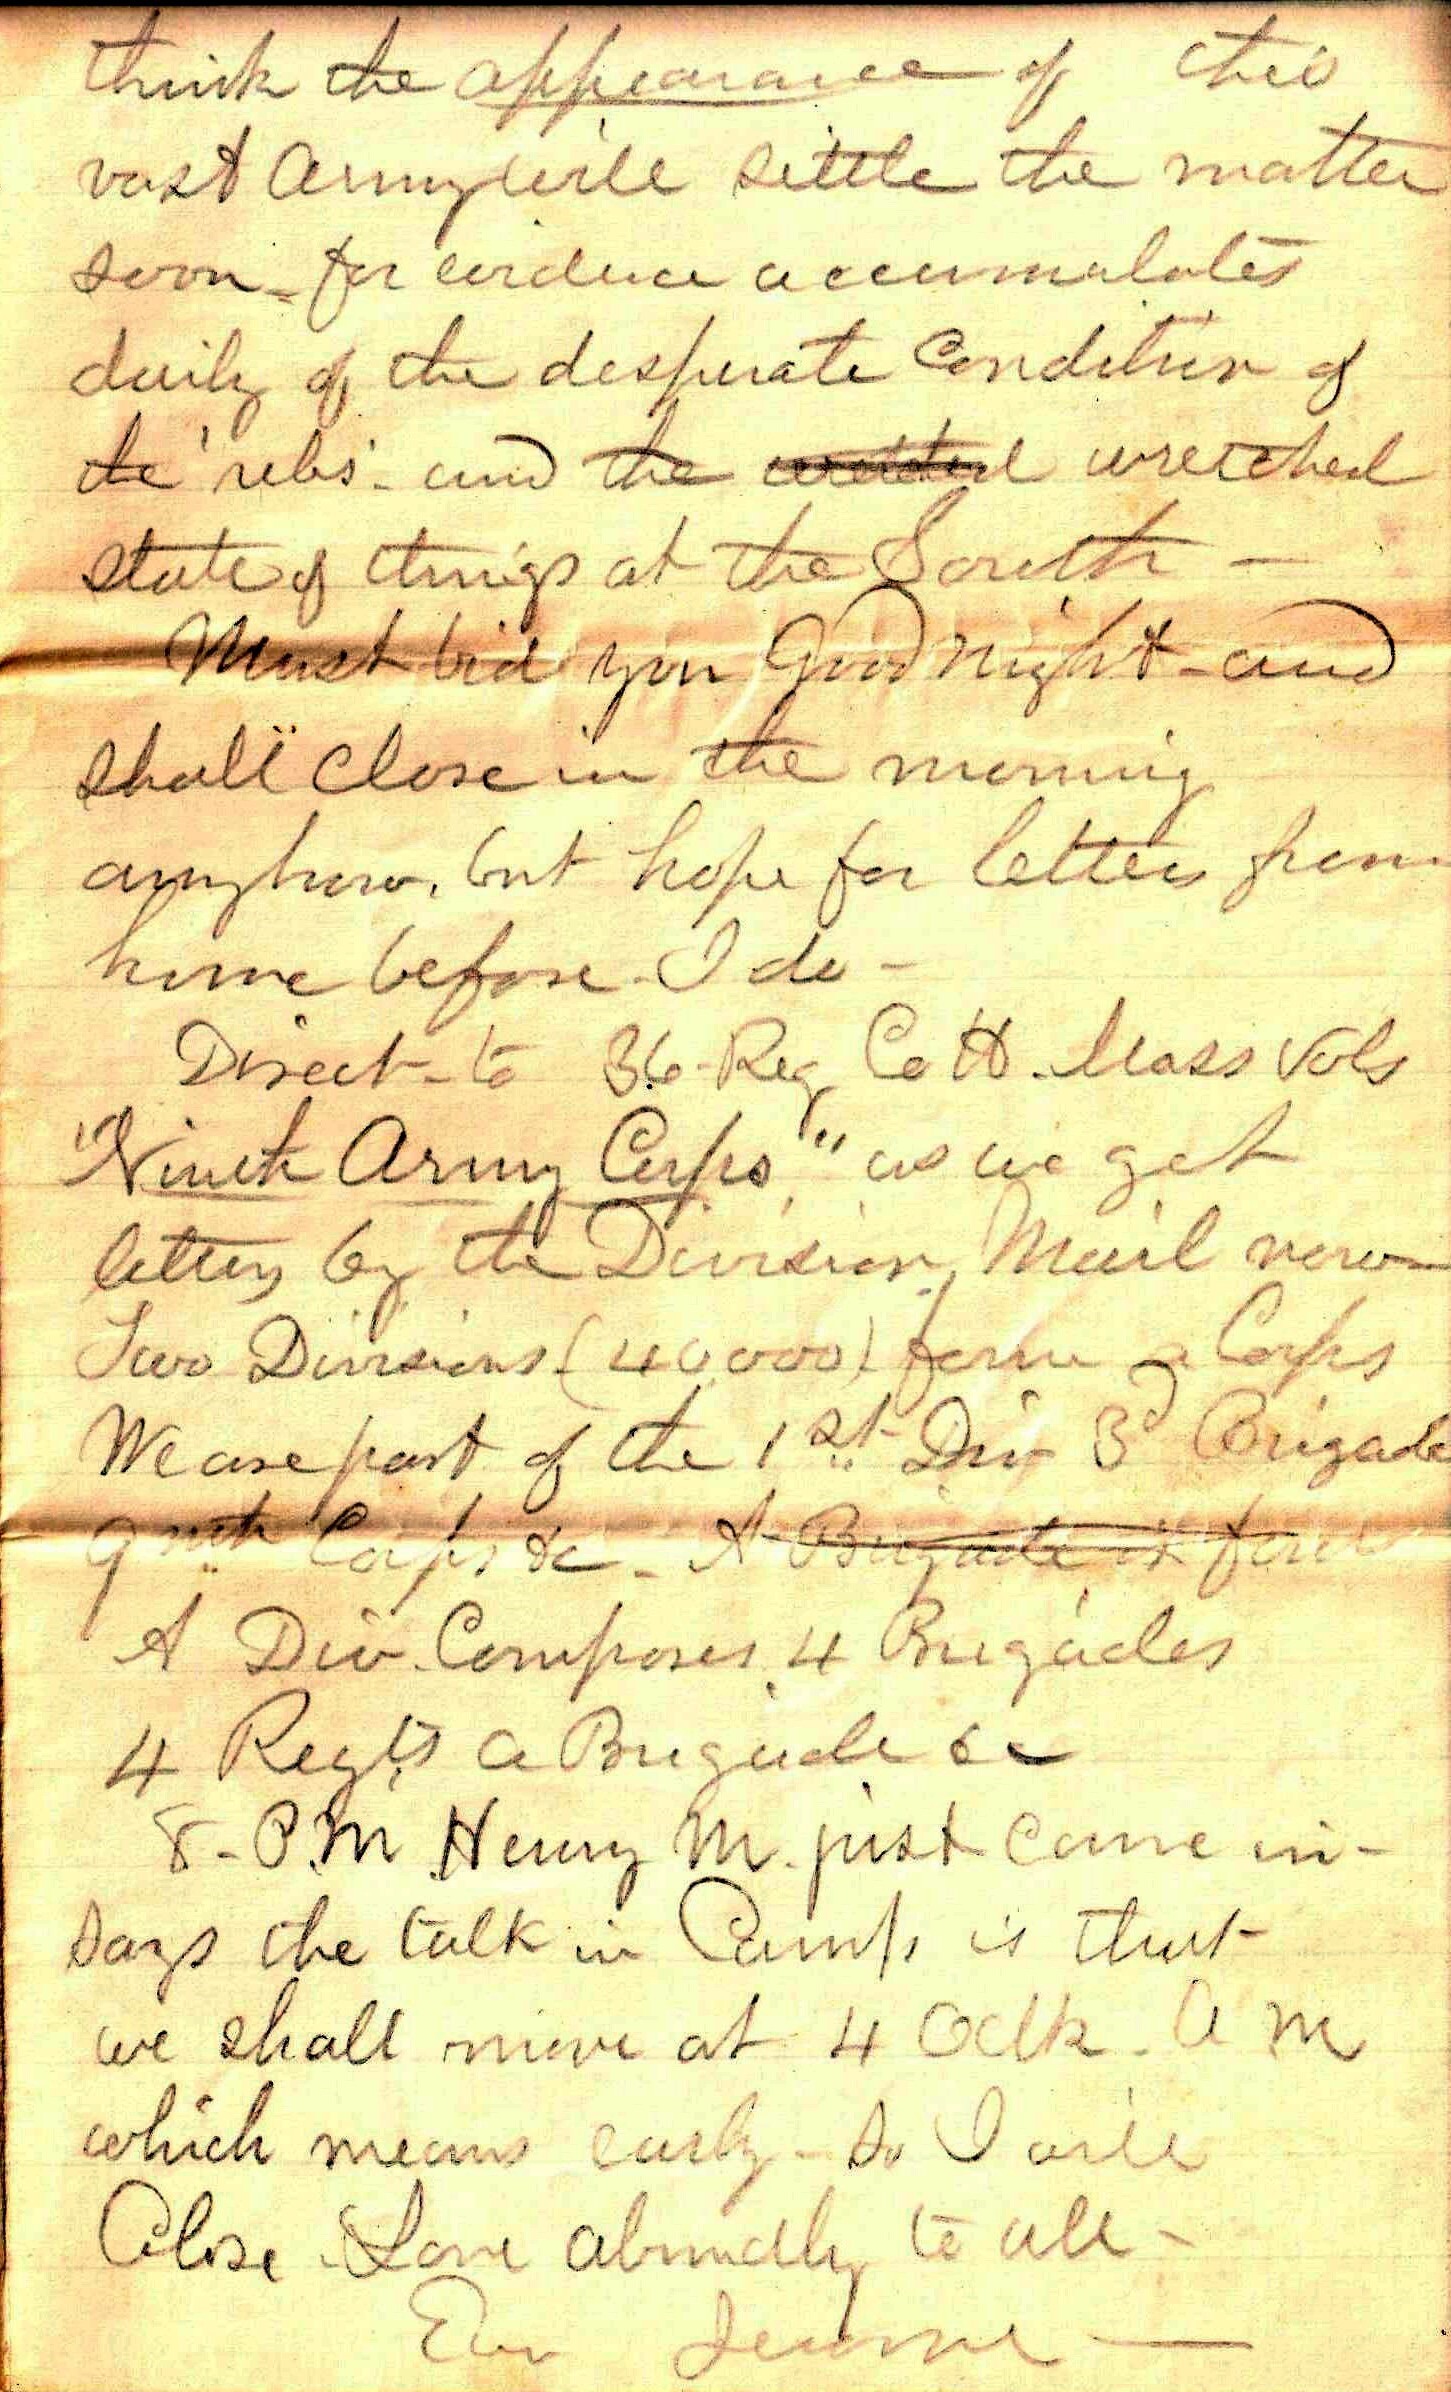 think the appearance of this
vast Army will settle the matter
soon - for evidence accumulates
daily of the desperate Condition of
the 'rebs' - and the wretched
state of things at the South -
Must bid you Good night - and
shall close in the morning
anyhow, but hope for letters from
home before I do -
Direct - to 36 - Reg Co H. Mass Vols
"Ninth Army Corps" as we get
letters by the Division Mail now
Two Divisions (40,000) form a Corps
We are part of the 1st Div 3d Brigade
9nth Corps &c - A Brigade is form
A Div. Composes 4 Brigades
4 Regts a Brigade &c
8 - P.M Henry M. just came in -
says the talk in Camp is that
we shall move at 4 Oclk. A M
which means early - so I will
Close. Love abundly to all -
Ever Jerome —